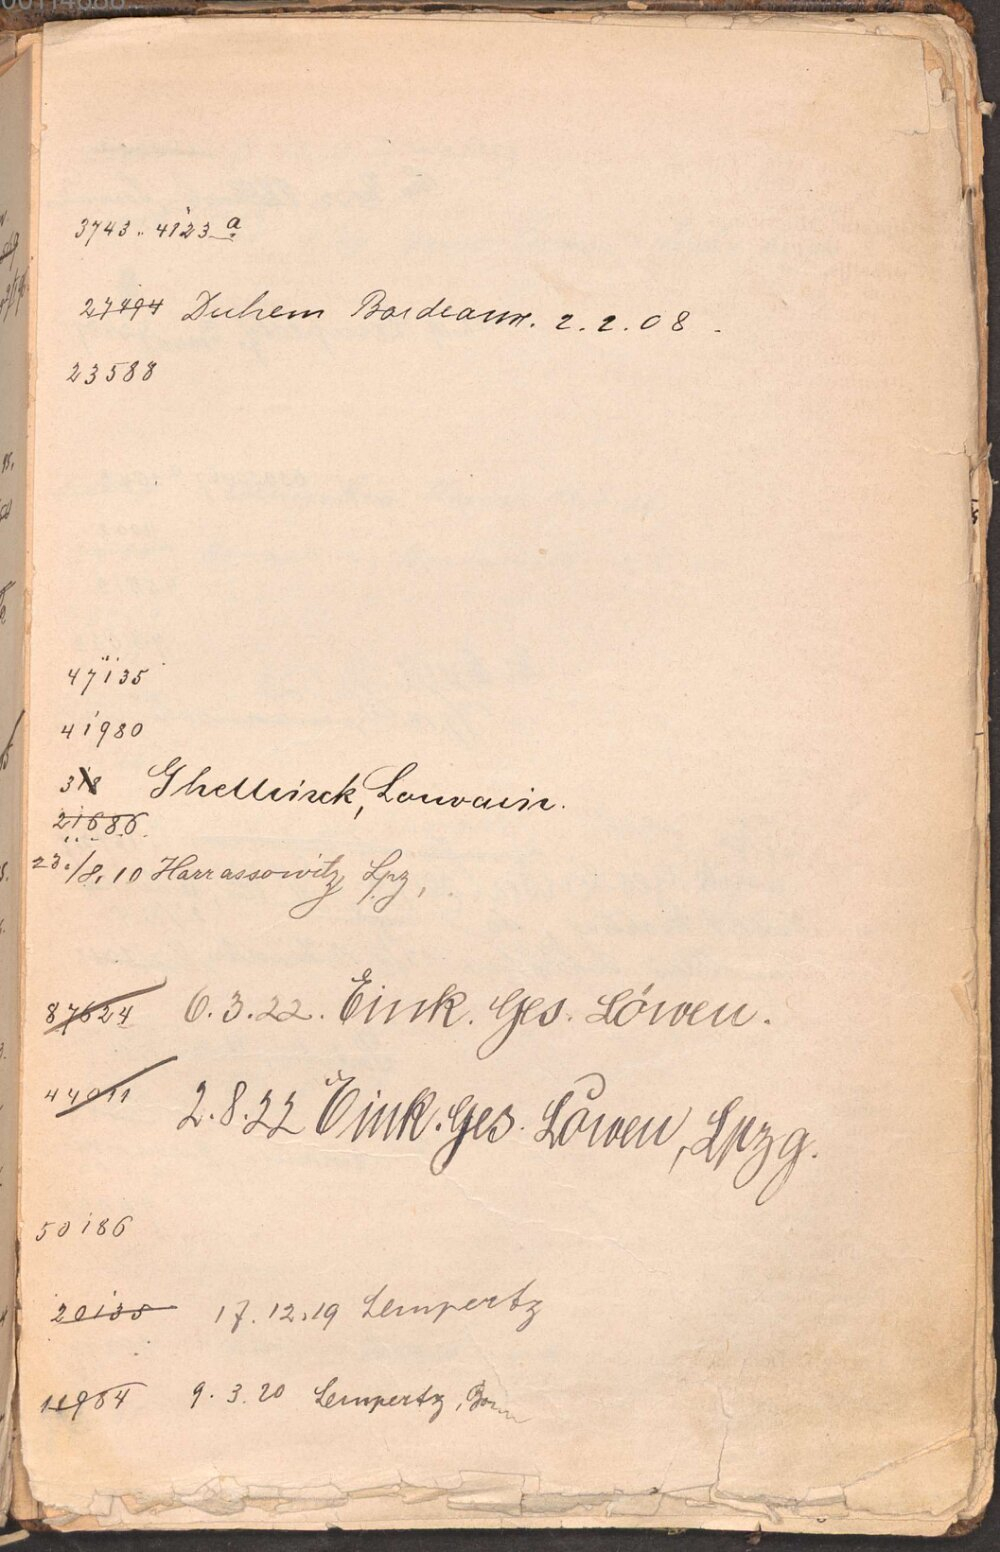 3743.. 4123 a
27494 Duhem Bordeaux. 2. 2. 08 .
23588
47135
41980
318 Ghellinck, Louvain.
21686.
23./8. 10 Harrassowitz Lpz,
87624 6. 3. 22. Eink. Ges. Löwen.
44011 2. 8. 22 Eink. Ges. Löwen, Lpzg.
50186
20135 17. 12. 19 Lempertz
11984 9. 3. 20 Lempertz, Bonn